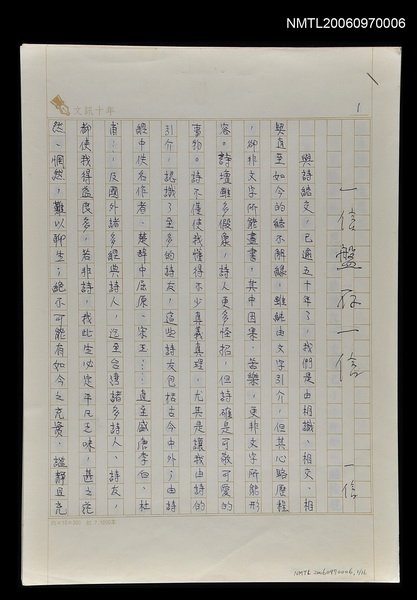 NMTL20060970006
文訊十年
1
一信盤存一信
一信
與詩結交，已逾五十年了，我們是由相識、相交、相
契直至如今的結不解緣，雖純由文字引介，但其心路歷程
，卻非文字所能盡書，其中因果、苦樂，更非文字所能形
容。詩壇雖多假象，詩人更多怪招，但詩確是可敬可愛的
事物。詩不僅使我懂得不少真義真理，尤其是讓我由詩的
引介，認識了至多的詩友，這些詩友包括古今中外，由詩
經中佚名作者、楚辭中屈原、宋玉……直至盛唐李白、杜
甫……，及國外諸多經典詩人，迄至台灣諸多詩人、詩友，
都使我得益良多，若非詩，我此生必定平凡乏味，甚之茫
然、惘然，難以聊生；絕不可能有如今之充實、謐靜且充
25×12=300
NMTL 20060970006, 1/16